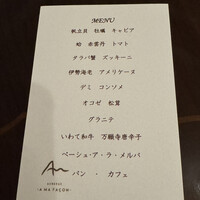 MENU
帆立貝　牡蠣　キャビア
蛤　赤雲丹　トマト
タラバ蟹　ズッキーニ
伊勢海老　アメリケーヌ
デミ　コンソメ
オコゼ　松茸
グラニテ
いわて和牛　万願寺唐辛子
ペーシュ・ア・ラ・メルバ
パン　・　カフェ
An
A MA FACON